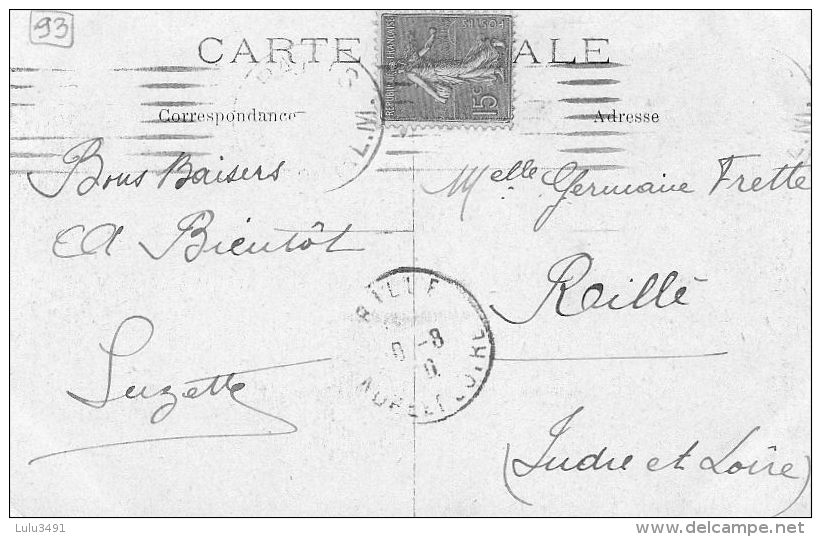 93
CARTE ALE
POSTES
REPUBLIQUE FRANÇAISE
15c
Correspondance
Adresse
Bons Baisers
A Bientôt
Suzette
Melle Germaine Frette
Rillé
(Indre et Loire)
RILLE
6 -8
INDRE ET LOIRE
Lulu3491
www.delcampe.net